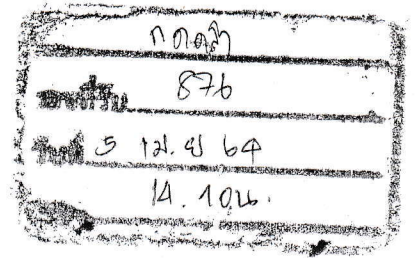 เลขที่รับ 876
วันที่ 5 เม.ย 64
14.10น.